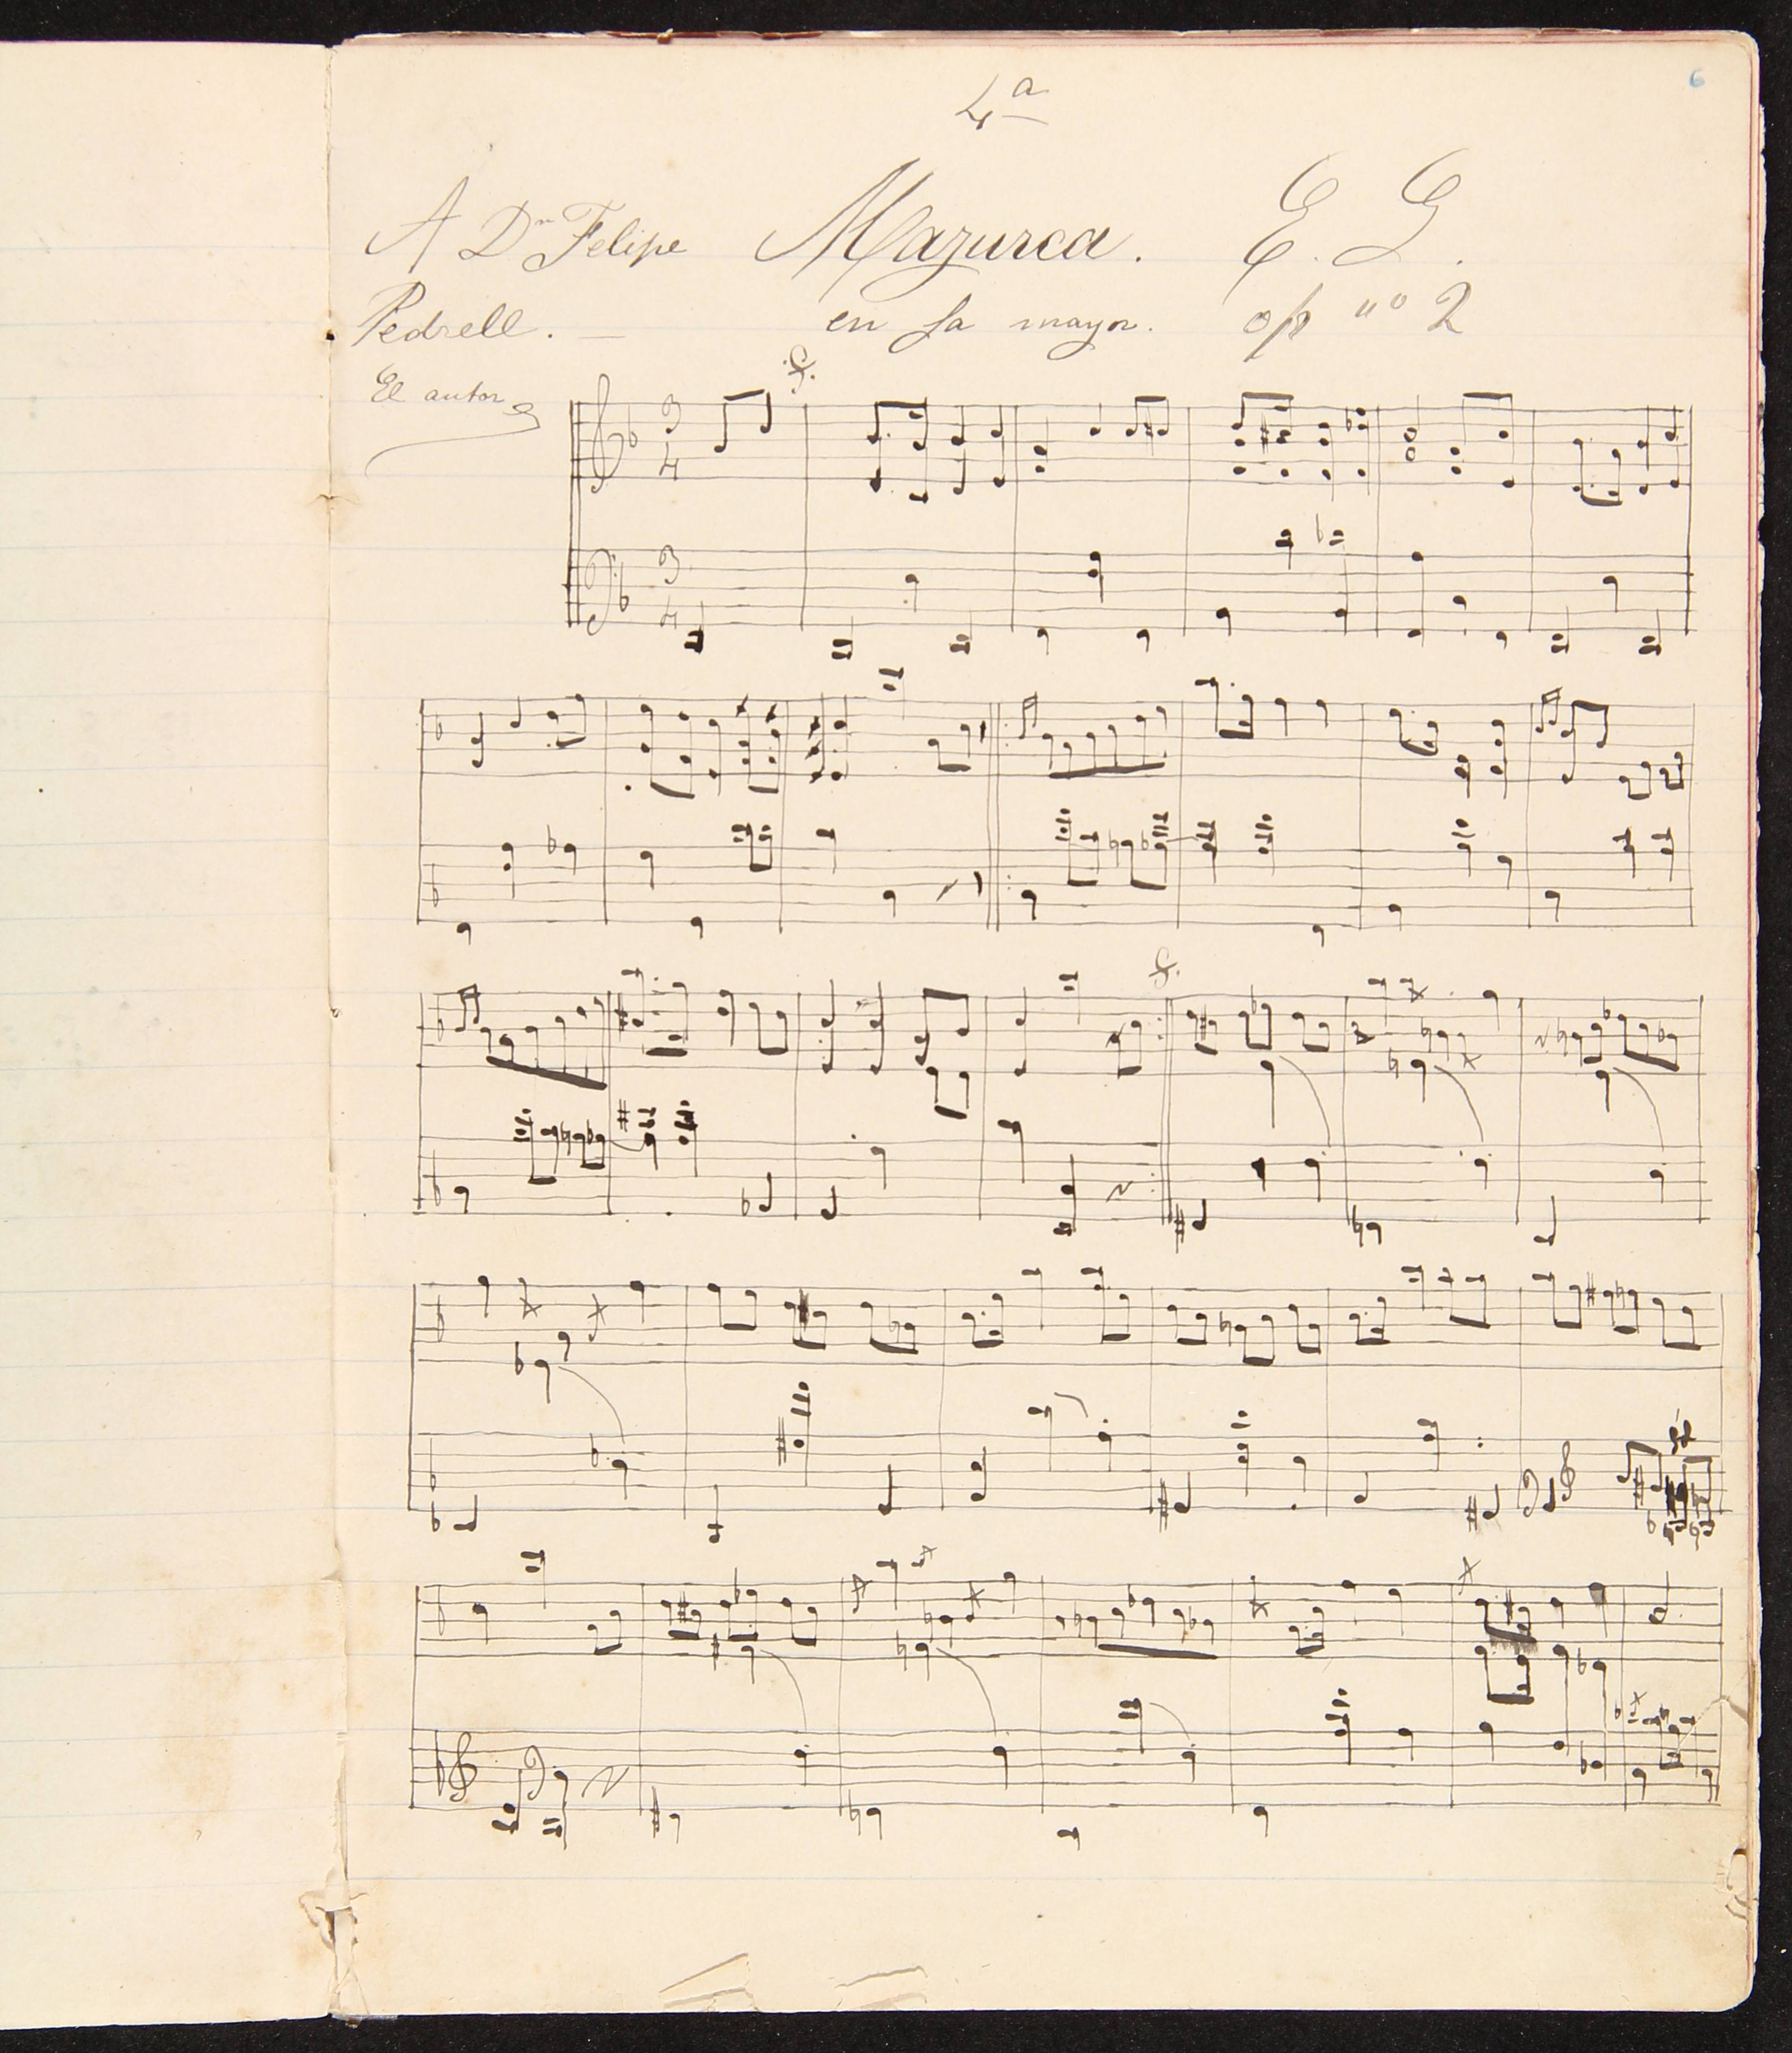 6
4ª
A Dn Felipe Mazurca. E. G.
Pedrell. — en fa mayor. op nº 2
El autor
3 4
3 4